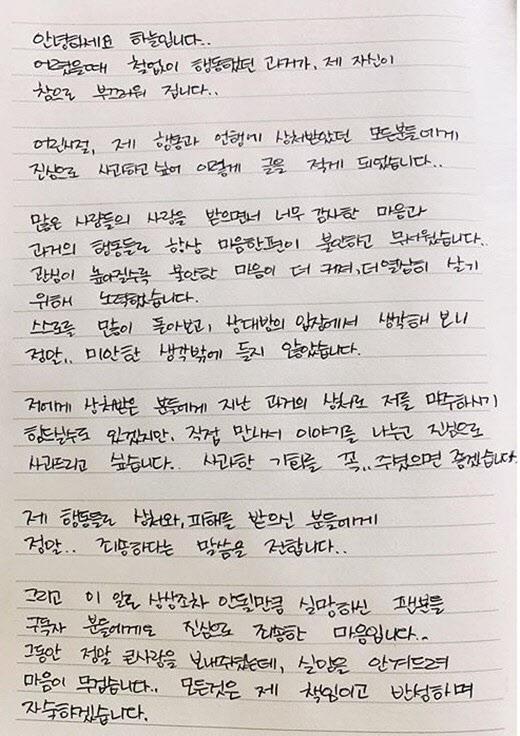 안녕하세요 하늘입니다..
어렸을때 철없이 행동했던 과거가, 제 자신이
참으로 부끄러워 집니다..
어린시절, 제 행동과 언행에 상처받았던 모든분들에게
진심으로 사과하고 싶어 이렇게 글을 적게 되었습니다..
많은 사람들의 사랑을 받으면서 너무 감사한 마음과
과거의 행동들로 항상 마음한편이 불안하고 무서웠습니다..
관심이 높아질수록 불안한 마음이 더 커져, 더 열심히 살기
위해 노력했습니다.
스스로를 많이 돌아보고, 상대방의 입장에서 생각해 보니
정말.. 미안한 생각밖에 들지 않았습니다.
저에게 상처받은 분들에게 지난 과거의 상처로 저를 마주하시기
힘드실수도 있겠지만, 직접 만나서 이야기를 나누고 진심으로
사과드리고 싶습니다.. 사과할 기회를 꼭.. 주셨으면 좋겠습니다.
제 행동들로 상처와, 피해를 받으신 분들에게
정말.. 죄송하다는 말씀을 전합니다..
그리고 이 일로 상상조차 안될만큼 실망하신 팬분들
구독자 분들에게도 진심으로 죄송한 마음입니다..
그동안 정말 큰사랑을 보내주셨는데, 실망을 안겨드려
마음이 무겁습니다.. 모든것은 제 책임이고 반성하며
자숙하겠습니다.